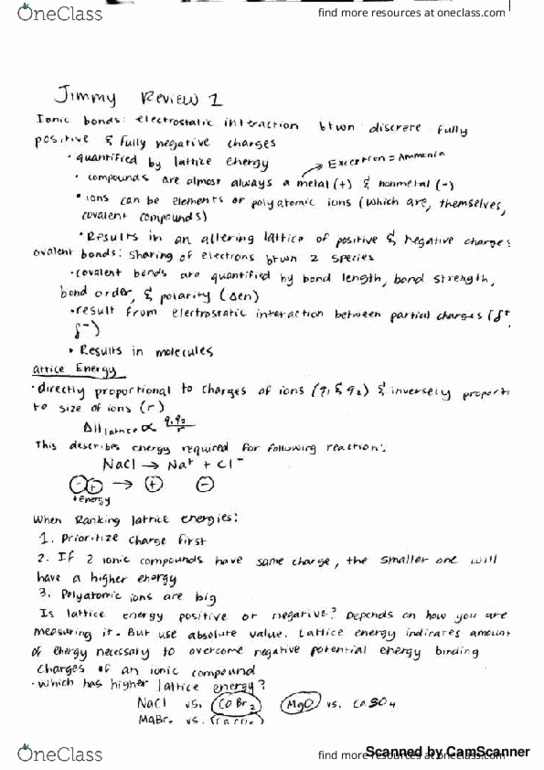 OneClass
find more resources at oneclass.com
Jimmy Review 1
Ionic bonds: electrostatic interaction btwn discrere fully
positive & fully negative charges
• quantified by lattice energy
→ Exception = Ammonia
• compounds are almost always a metal (+) & nonmetal (-)
• ions can be elements or polyatomic ions (which are, themselves,
covalent compounds)
• Results in an altering lattice of positive & negative charges
ovalent bonds: sharing of electrons btwn 2 species
• covalent bonds are quantified by bond length, bond strength,
bond order, & polarity (Δen)
• result from electrostatic interaction between partial charges (δ+
δ-)
• Results in molecules
attice Energy
• directly proportional to charges of ions (q1 & q2) & inversely proporti
to size of ions (r)
ΔHlattice ∝ q1q2/r
This describes energy required for following reaction:
NaCl → Na+ + Cl-
- + → + -
+energy
When Ranking lattice energies:
1. Prioritize charge first
2. If 2 ionic compounds have same charge, the smaller one will
have a higher energy
3. Polyatomic ions are big
Is lattice energy positive or negative? Depends on how you are
measuring it. But use absolute value. Lattice energy indicates amount
of energy necessary to overcome negative potential energy binding
charges of an ionic compound
• which has higher lattice energy?
NaCl vs. CaBr2 MgO vs. CaSO4
vs.
OneClass
find more resources at oneclass.com
Scanned by CamScanner